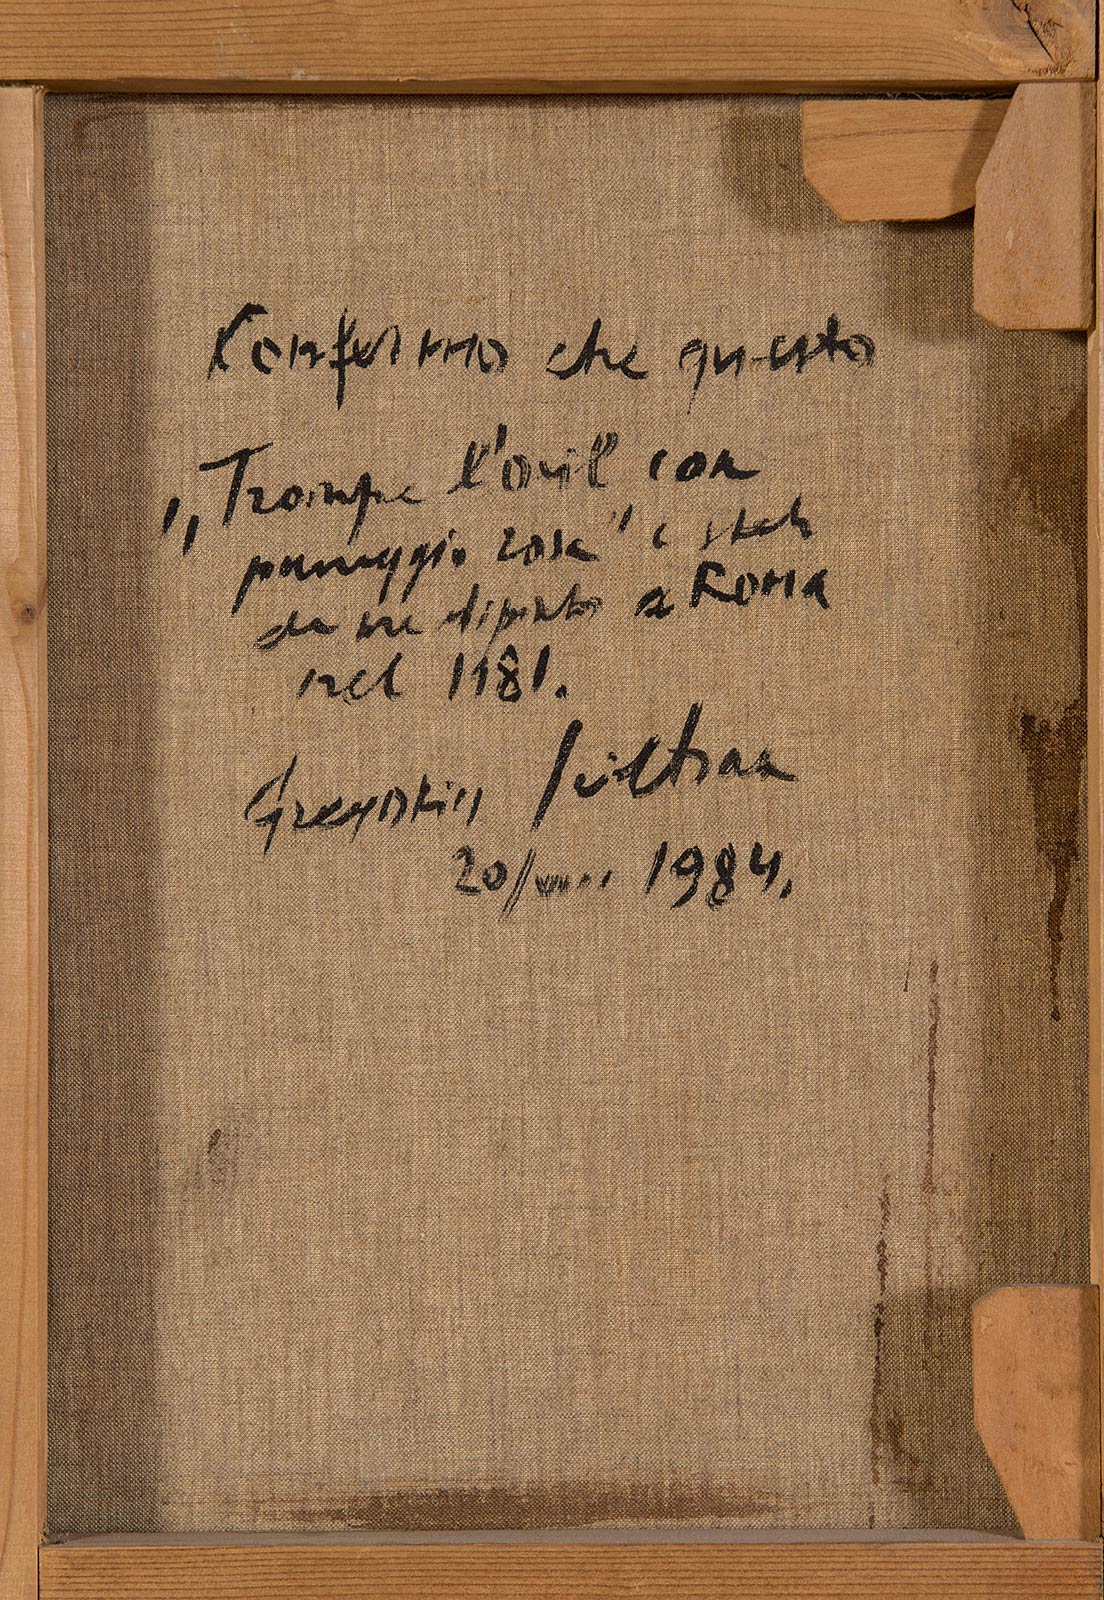 Confermo che questo
„Trompe l'oeil con
panneggio rosa" è stato
da me dipinto a Roma
nel 1981.
Gregorio Sciltian
20/ 1984.